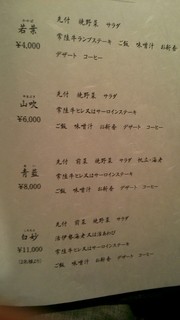 若葉
¥4,000
先付 焼野菜 サラダ
常陸牛ランプステーキ ご飯 味噌汁 お新香
デザート コーヒー
山吹
¥6,000
先付 焼野菜 サラダ
常陸牛ヒレ又はサーロインステーキ
ご飯 味噌汁 お新香 デザート コーヒー
青藍
¥8,000
先付 前菜 焼野菜 サラダ 帆立・海老
常陸牛ヒレ又はサーロインステーキ
ご飯 味噌汁 お新香 デザート コーヒー
白妙
¥11,000
先付 前菜 焼野菜 サラダ
活伊勢海老又は活あわび
常陸牛ヒレ又はサーロインステーキ
ご飯 味噌汁 お新香 デザート コーヒー